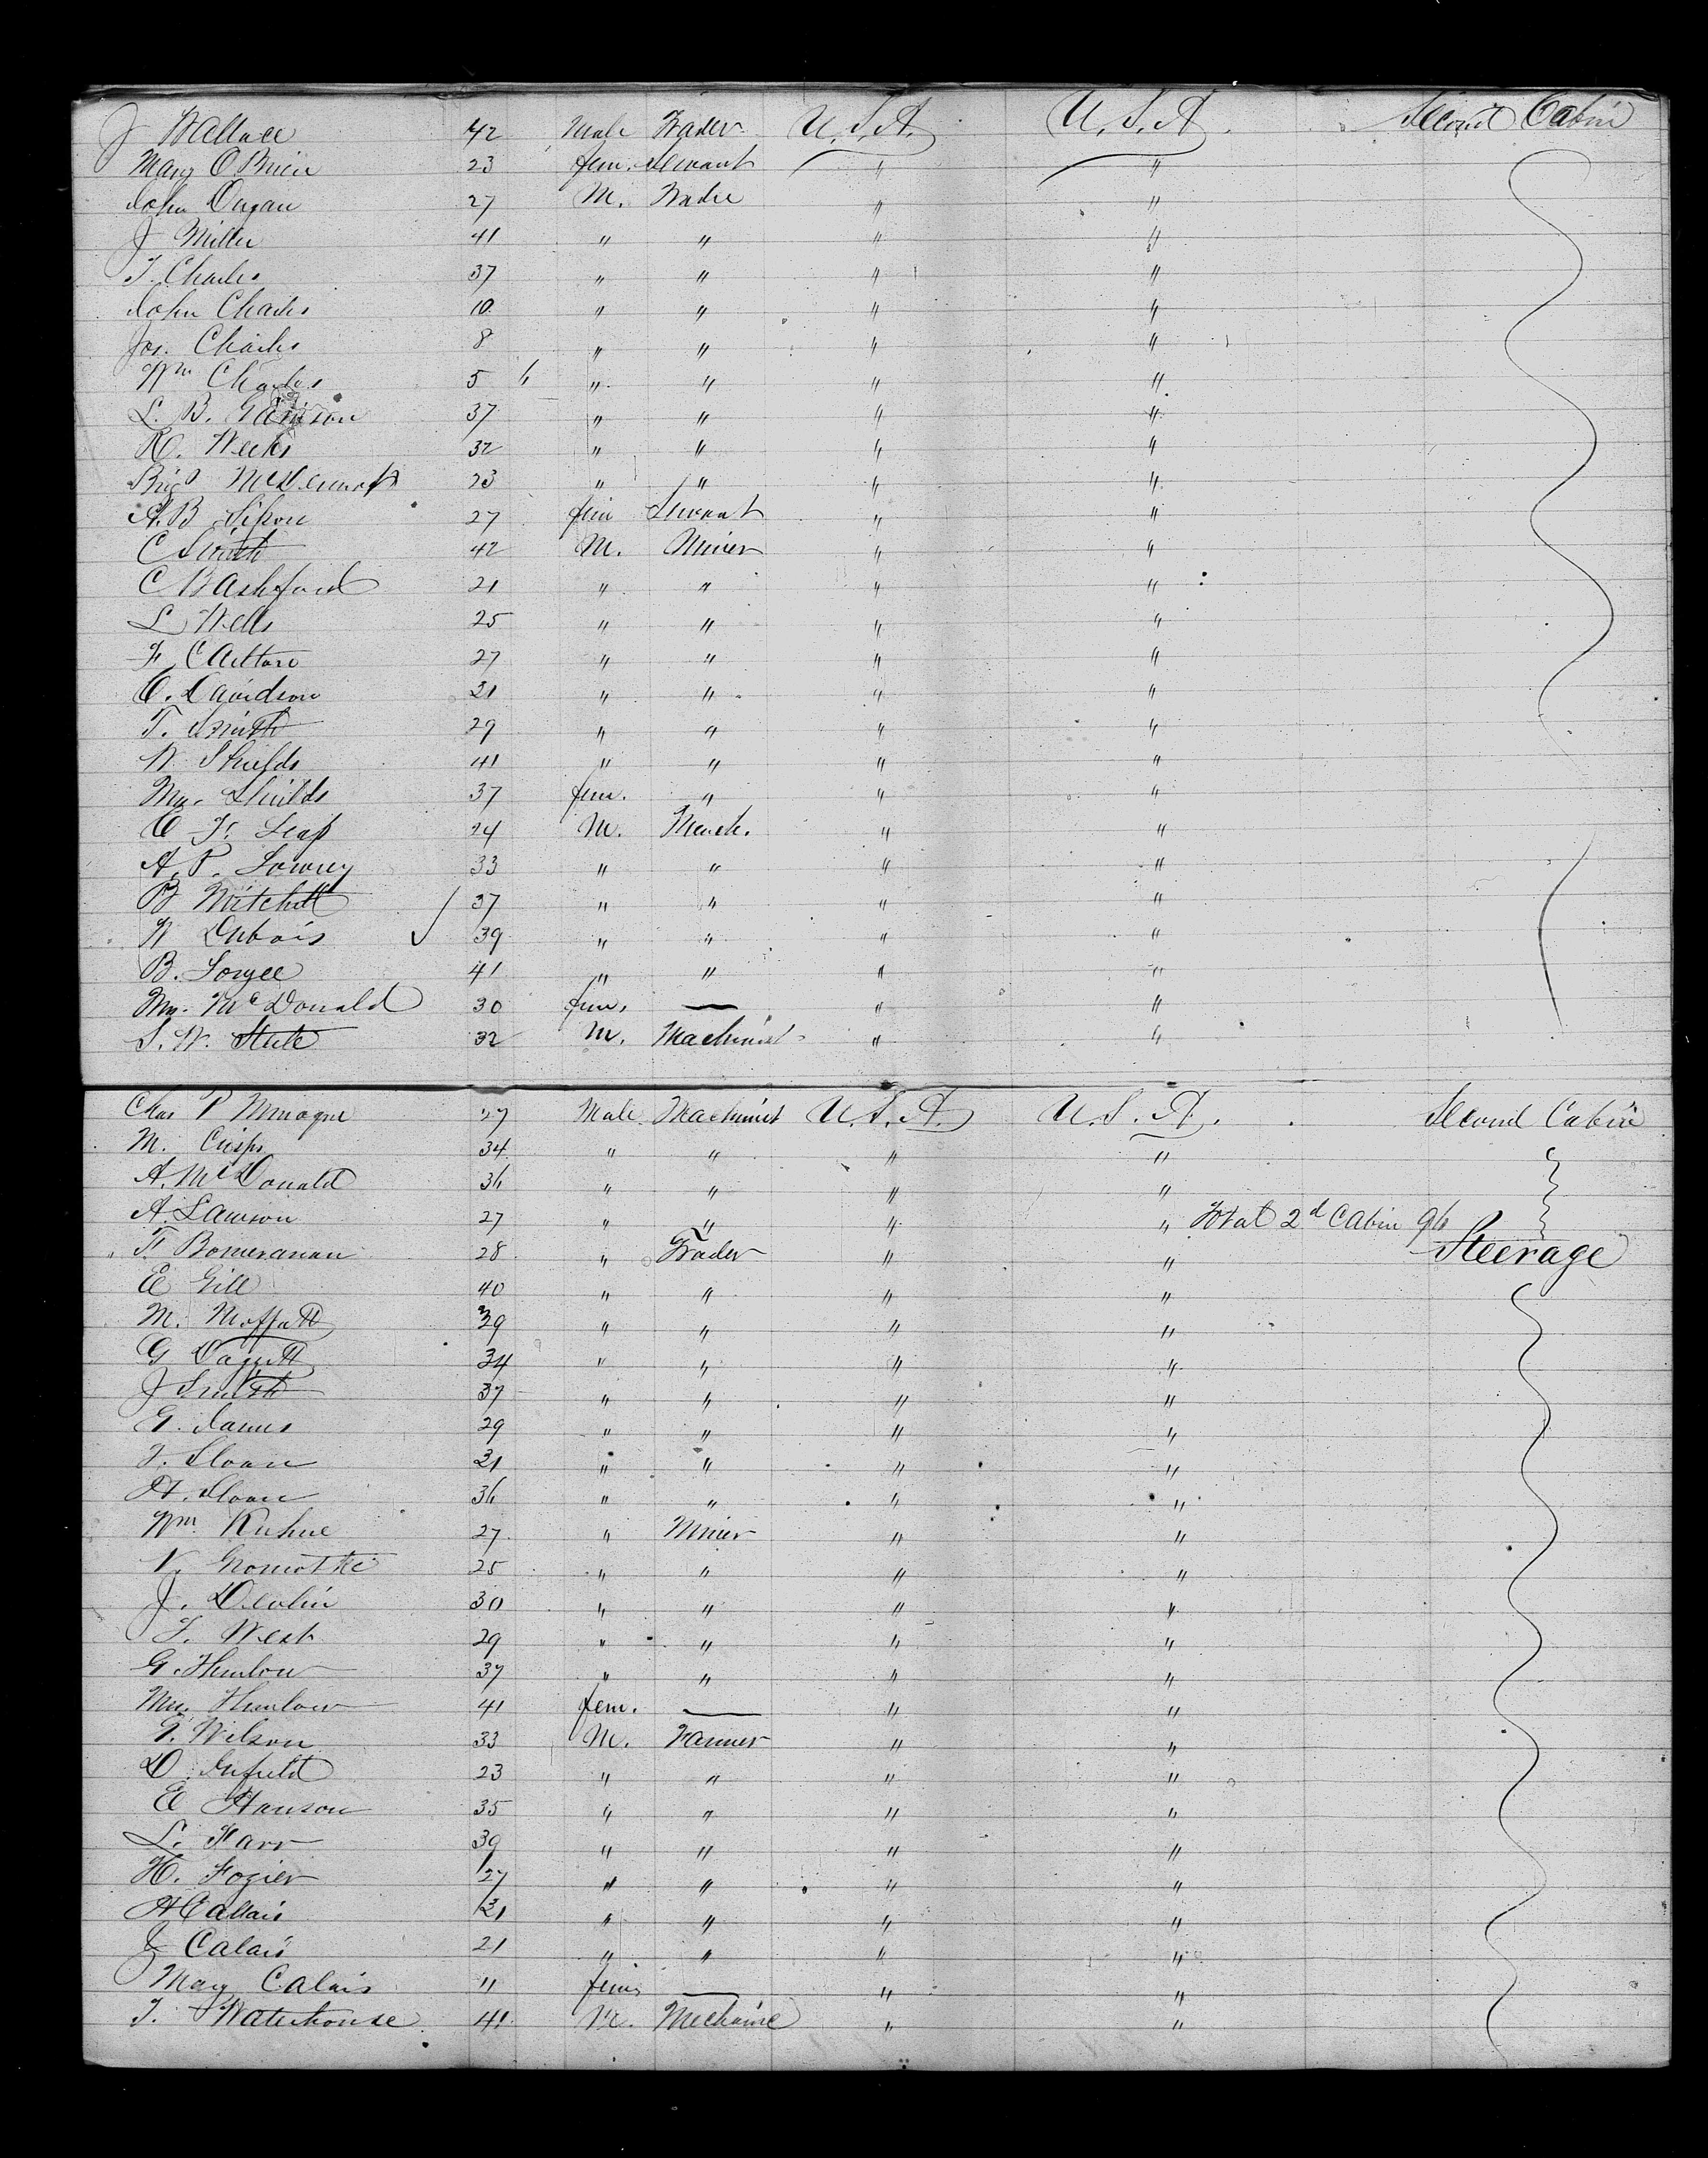 J Wallace 42 Male Trader U.S.A. U.S.A. Second Cabin
Mary O'Brien 23 fem. Servant " "
John Dugan 27 M. Trader " "
J Miller 41 " " " "
T. Charles 37 " " " "
John Charles 10 " " " "
Jos. Charles 8 " " " "
Wm Charles 5 " " " "
L. B. Garrison 37 " " " "
R. Weeks 32 " " " "
Brigd McDermott 23 " " " "
A. B 27 fem Servant " "
C Smith 42 M. Miner " "
C Bashford 21 " " " "
L Wells 25 " " " "
F Carlton 27 " " " "
O. Davidson 21 " " " "
T. Smith 29 " " " "
W. Shields 41 " " " "
Mrs. Shields 37 fem. " " "
O F. Leap 24 M. Merch. " "
A. P. Lowrey 33 " " " "
B Mitchell 37 " " " "
W Dubois 39 " " " "
B. 41 " " " "
Mrs. McDonald 30 fem. — " "
S. W. Stute 32 M. Machinist " "
Chas P Minogue 27 Male Machinist U.S.A. U.S.A. Second Cabin
M. Crisps 34 " " " "
A. McDonald 36 " " " "
A. Lawson 27 " " " " Total 2d Cabin 96
T. Bomeranan 28 " Trader " " Steerage
E Gill 40 " " " "
M. Moffatt 39 " " " "
G Daggett 34 " " " "
J Smith 37 " " " "
G. James 29 " " " "
F. Sloan 21 " " " "
H. Sloan 36 " " " "
Wm. Kuhne 27 " Miner " "
25 " " " "
J. Devlin 30 " " " "
T. West 29 " " " "
G. Thurlow 37 " " " "
Mrs. Thurlow 41 fem. — " "
T. Wilson 33 M. Farmer " "
D. Enfield 23 " " " "
E Hanson 35 " " " "
L. Starr 39 " " " "
H. Fogier 27 " " " "
A Callais 21 " " " "
J Calais 21 " " " "
Mary Calais 11 fem. — " "
T. Waterhouse 41 M. Mechanic " "